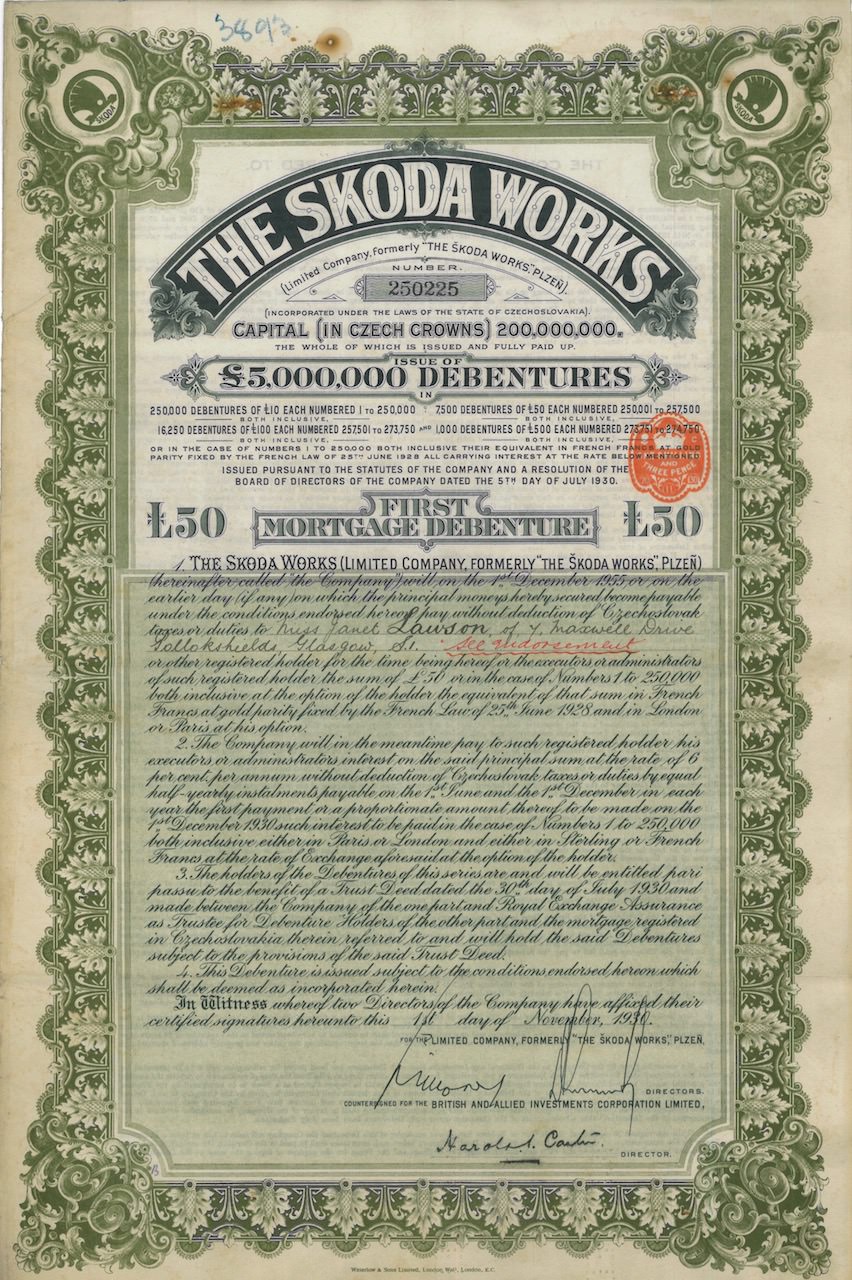 3893
SKODA
SKODA
THE SKODA WORKS
(Limited Company, formerly "THE ŠKODA WORKS", PLZEŇ).
NUMBER.
250225
(INCORPORATED UNDER THE LAWS OF THE STATE OF CZECHOSLOVAKIA).
CAPITAL (IN CZECH CROWNS) 200,000,000.
THE WHOLE OF WHICH IS ISSUED AND FULLY PAID UP.
ISSUE OF
£5,000,000 DEBENTURES
IN
250,000 DEBENTURES OF £10 EACH NUMBERED 1 TO 250,000 : 7,500 DEBENTURES OF £50 EACH NUMBERED 250,001 TO 257,500
BOTH INCLUSIVE, BOTH INCLUSIVE,
16,250 DEBENTURES OF £100 EACH NUMBERED 257,501 TO 273,750 AND 1,000 DEBENTURES OF £500 EACH NUMBERED 273,751 TO 274,750
BOTH INCLUSIVE, BOTH INCLUSIVE,
OR IN THE CASE OF NUMBERS 1 TO 250,000 BOTH INCLUSIVE THEIR EQUIVALENT IN FRENCH FRANCS AT GOLD
PARITY FIXED BY THE FRENCH LAW OF 25TH JUNE 1928 ALL CARRYING INTEREST AT THE RATE BELOW MENTIONED
AND
THREE PENCE
ISSUED PURSUANT TO THE STATUTES OF THE COMPANY AND A RESOLUTION OF THE
BOARD OF DIRECTORS OF THE COMPANY DATED THE 5TH DAY OF JULY 1930.
£50 FIRST £50
MORTGAGE DEBENTURE
1. THE SKODA WORKS (LIMITED COMPANY, FORMERLY "THE ŠKODA WORKS", PLZEŇ)
(hereinafter called "the Company") will on the 1st December 1955 or on the
earlier day (if any) on which the principal moneys hereby secured become payable
under the conditions endorsed hereon pay without deduction of Czechoslovak
taxes or duties to Miss Janet Lawson, of 7, Maxwell Drive
Pollokshields, Glasgow, S.1. See endorsement
or other registered holder for the time being hereof or the executors or administrators
of such registered holder the sum of £50 or in the case of Numbers 1 to 250,000
both inclusive at the option of the holder the equivalent of that sum in French
Francs at gold parity fixed by the French Law of 25th June 1928 and in London
or Paris at his option.
2. The Company will in the meantime pay to such registered holder his
executors or administrators interest on the said principal sum at the rate of 6
per cent. per annum without deduction of Czechoslovak taxes or duties by equal
half-yearly instalments payable on the 1st June and the 1st December in each
year the first payment or a proportionate amount thereof to be made on the
1st December 1930 such interest to be paid in the case of Numbers 1 to 250,000
both inclusive either in Paris or London and either in Sterling or French
Francs at the rate of Exchange aforesaid at the option of the holder.
3. The holders of the Debentures of this series are and will be entitled pari
passu to the benefit of a Trust Deed dated the 30th day of July 1930 and
made between the Company of the one part and Royal Exchange Assurance
as Trustee for Debenture Holders of the other part and the mortgage registered
in Czechoslovakia therein referred to and will hold the said Debentures
subject to the provisions of the said Trust Deed.
4. This Debenture is issued subject to the conditions endorsed hereon which
shall be deemed as incorporated herein.
In Witness whereof two Directors of the Company have affixed their
certified signatures hereunto this 1st day of November, 1930.
FOR THE LIMITED COMPANY, FORMERLY "THE ŠKODA WORKS", PLZEŇ,
DIRECTORS.
COUNTERSIGNED FOR THE BRITISH AND ALLIED INVESTMENTS CORPORATION LIMITED,
Harold
DIRECTOR.
Waterlow & Sons Limited, London Wall, London, E.C.